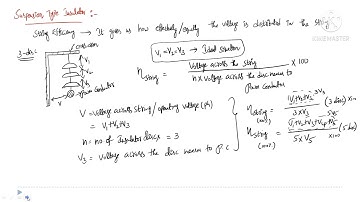 Suspension Type Insulator :-
KINEMASTER
String Efficiency → It gives us how effectively/equally the voltage is distributed in the string
3-disc
V₁
V₂
V₃
Power Conductor
V
V₁=V₂=V₃ → Ideal situation
η string = Voltage across the string / n x voltage across the disc nearer to Power Conductor x 100
V = Voltage across string / operating voltage (ph)
= V₁+V₂+V₃
n = no of insulator discs = 3
V₃ = voltage across the disc nearer to P C
η string = V₁+V₂+V₃ / 3xV₃ (3 disc) x100
η string = V₁+V₂+V₃+V₄+V₅ / 5xV₅ x100 (5 disc)